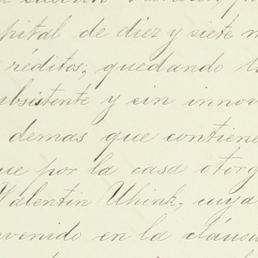 pital de diez y siete m
réditos; quedando
bsistente y sin innov
demas que contiene
ue por la casa otorg
Valentin Uhink, cuya
venido en la cláusu